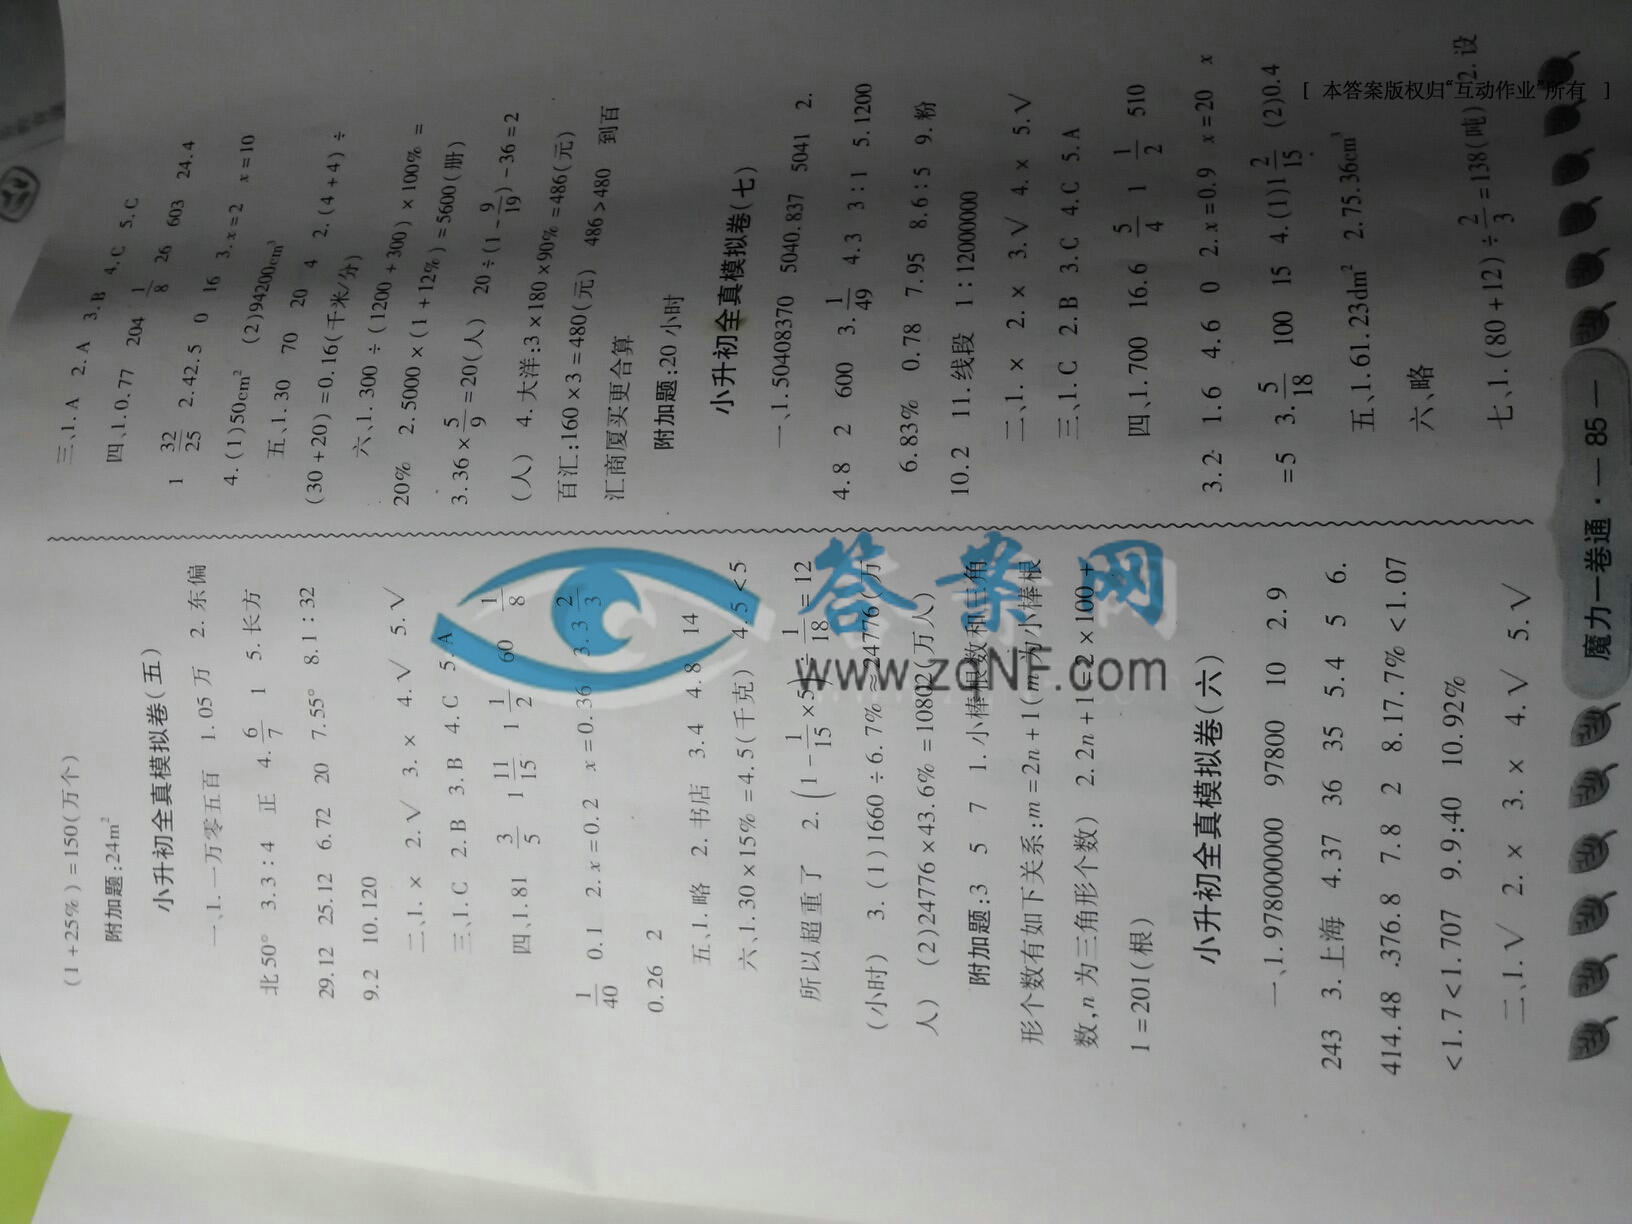 (1+25%)=150(万个)
附加题:24m²
小升初全真模拟卷(五)
一、1.一万零五百 1.05万 2.东偏
北50° 3.3:4 正 4.6/7 1 5.长方
29.12 25.12 6.72 20 7.55° 8.1:32
9.2 10.120
二、1.× 2.√ 3.× 4.√ 5.√
三、1.C 2.B 3.B 4.C 5.A
四、1.81 3/5 1 11/15 1 1/2 60 1/8
1/40 0.1 2.x=0.2 x=0.36 3.3 2/3
0.26 2
五、1.略 2.书店 3.4 4.8 14
六、1.30×15%=4.5(千克) 4.5<5
所以超重了 2.(1-1/15×5)÷1/18=12
(小时) 3.(1)1660÷6.7%≈24776(万
人) (2)24776×43.6%=10802(万人)
附加题:3 5 7 1.小棒根数和三角
形个数有如下关系:m=2n+1(m为小棒根
数,n为三角形个数) 2.2n+1=2×100+
1=201(根)
小升初全真模拟卷(六)
一、1.978000000 97800 10 2.9
243 3.上海 4.37 36 35 5.4 5 6.
414.48 .376.8 7.8 2 8.17.7%<1.07
<1.7<1.707 9.9:40 10.92%
二、1.√ 2.× 3.× 4.√ 5.√
三、1.A 2.A 3.B 4.C 5.C
四、1.0.77 204 1/8 26 603 24.4
1 32/25 2.42.5 0 16 3.x=2 x=10
4.(1)50cm² (2)94200cm³
五、1.30 70 20 4 2.(4+4)÷
(30+20)=0.16(千米/分)
六、1.300÷(1200+300)×100%=
20% 2.5000×(1+12%)=5600(册)
3.36×5/9=20(人) 20÷(1-9/19)-36=2
(人) 4.大洋:3×180×90%=486(元)
百汇:160×3=480(元) 486>480 到百
汇商厦买更合算
附加题:20小时
小升初全真模拟卷(七)
一、1.50408370 5040.837 5041 2.
4.8 2 600 3.1/49 4.3 3:1 5.1200
6.83% 0.78 7.95 8.6:5 9.粉
10.2 11.线段 1:12000000
二、1.× 2.× 3.√ 4.× 5.√
三、1.C 2.B 3.C 4.C 5.A
四、1.700 16.6 5/4 1 1/2 510
3.2 1.6 4.6 0 2.x=0.9 x=20 x
=5 3.5/18 100 15 4.(1)1 2/15 (2)0.4
五、1.61.23dm² 2.75.36cm³
六、略
七、1.(80+12)÷2/3=138(吨) 2.设
魔力一卷通·—85—
[ 本答案版权归“互动作业”所有 ]
答案网
www.zqNF.com